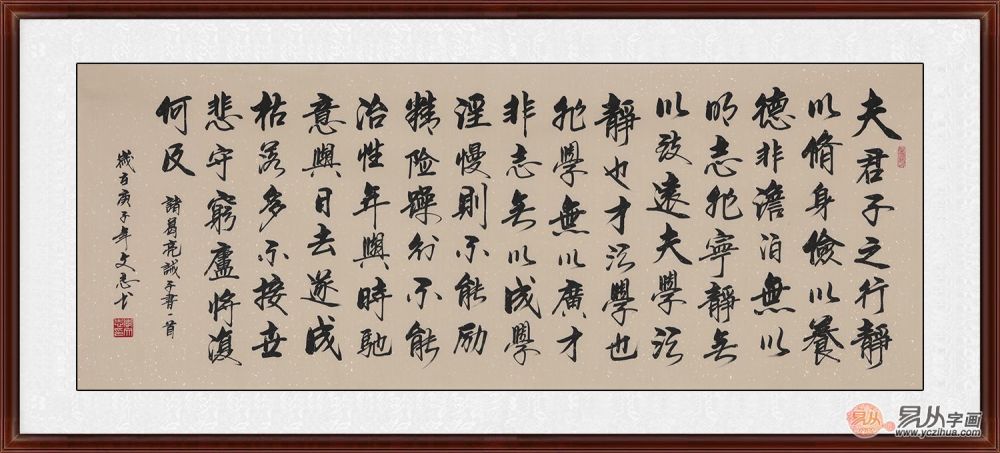 夫君子之行靜
以脩身儉以養
德非澹泊無以
明志非寧靜無
以致遠夫學須
靜也才須學也
非學無以廣才
非志無以成學
淫慢則不能励
精险躁則不能
治性年與時馳
意與日去遂成
枯落多不接世
悲守窮廬將復
何及
諸葛亮誡子書一首
歲在庚子年文忠书
易从字画
www.yczihua.com